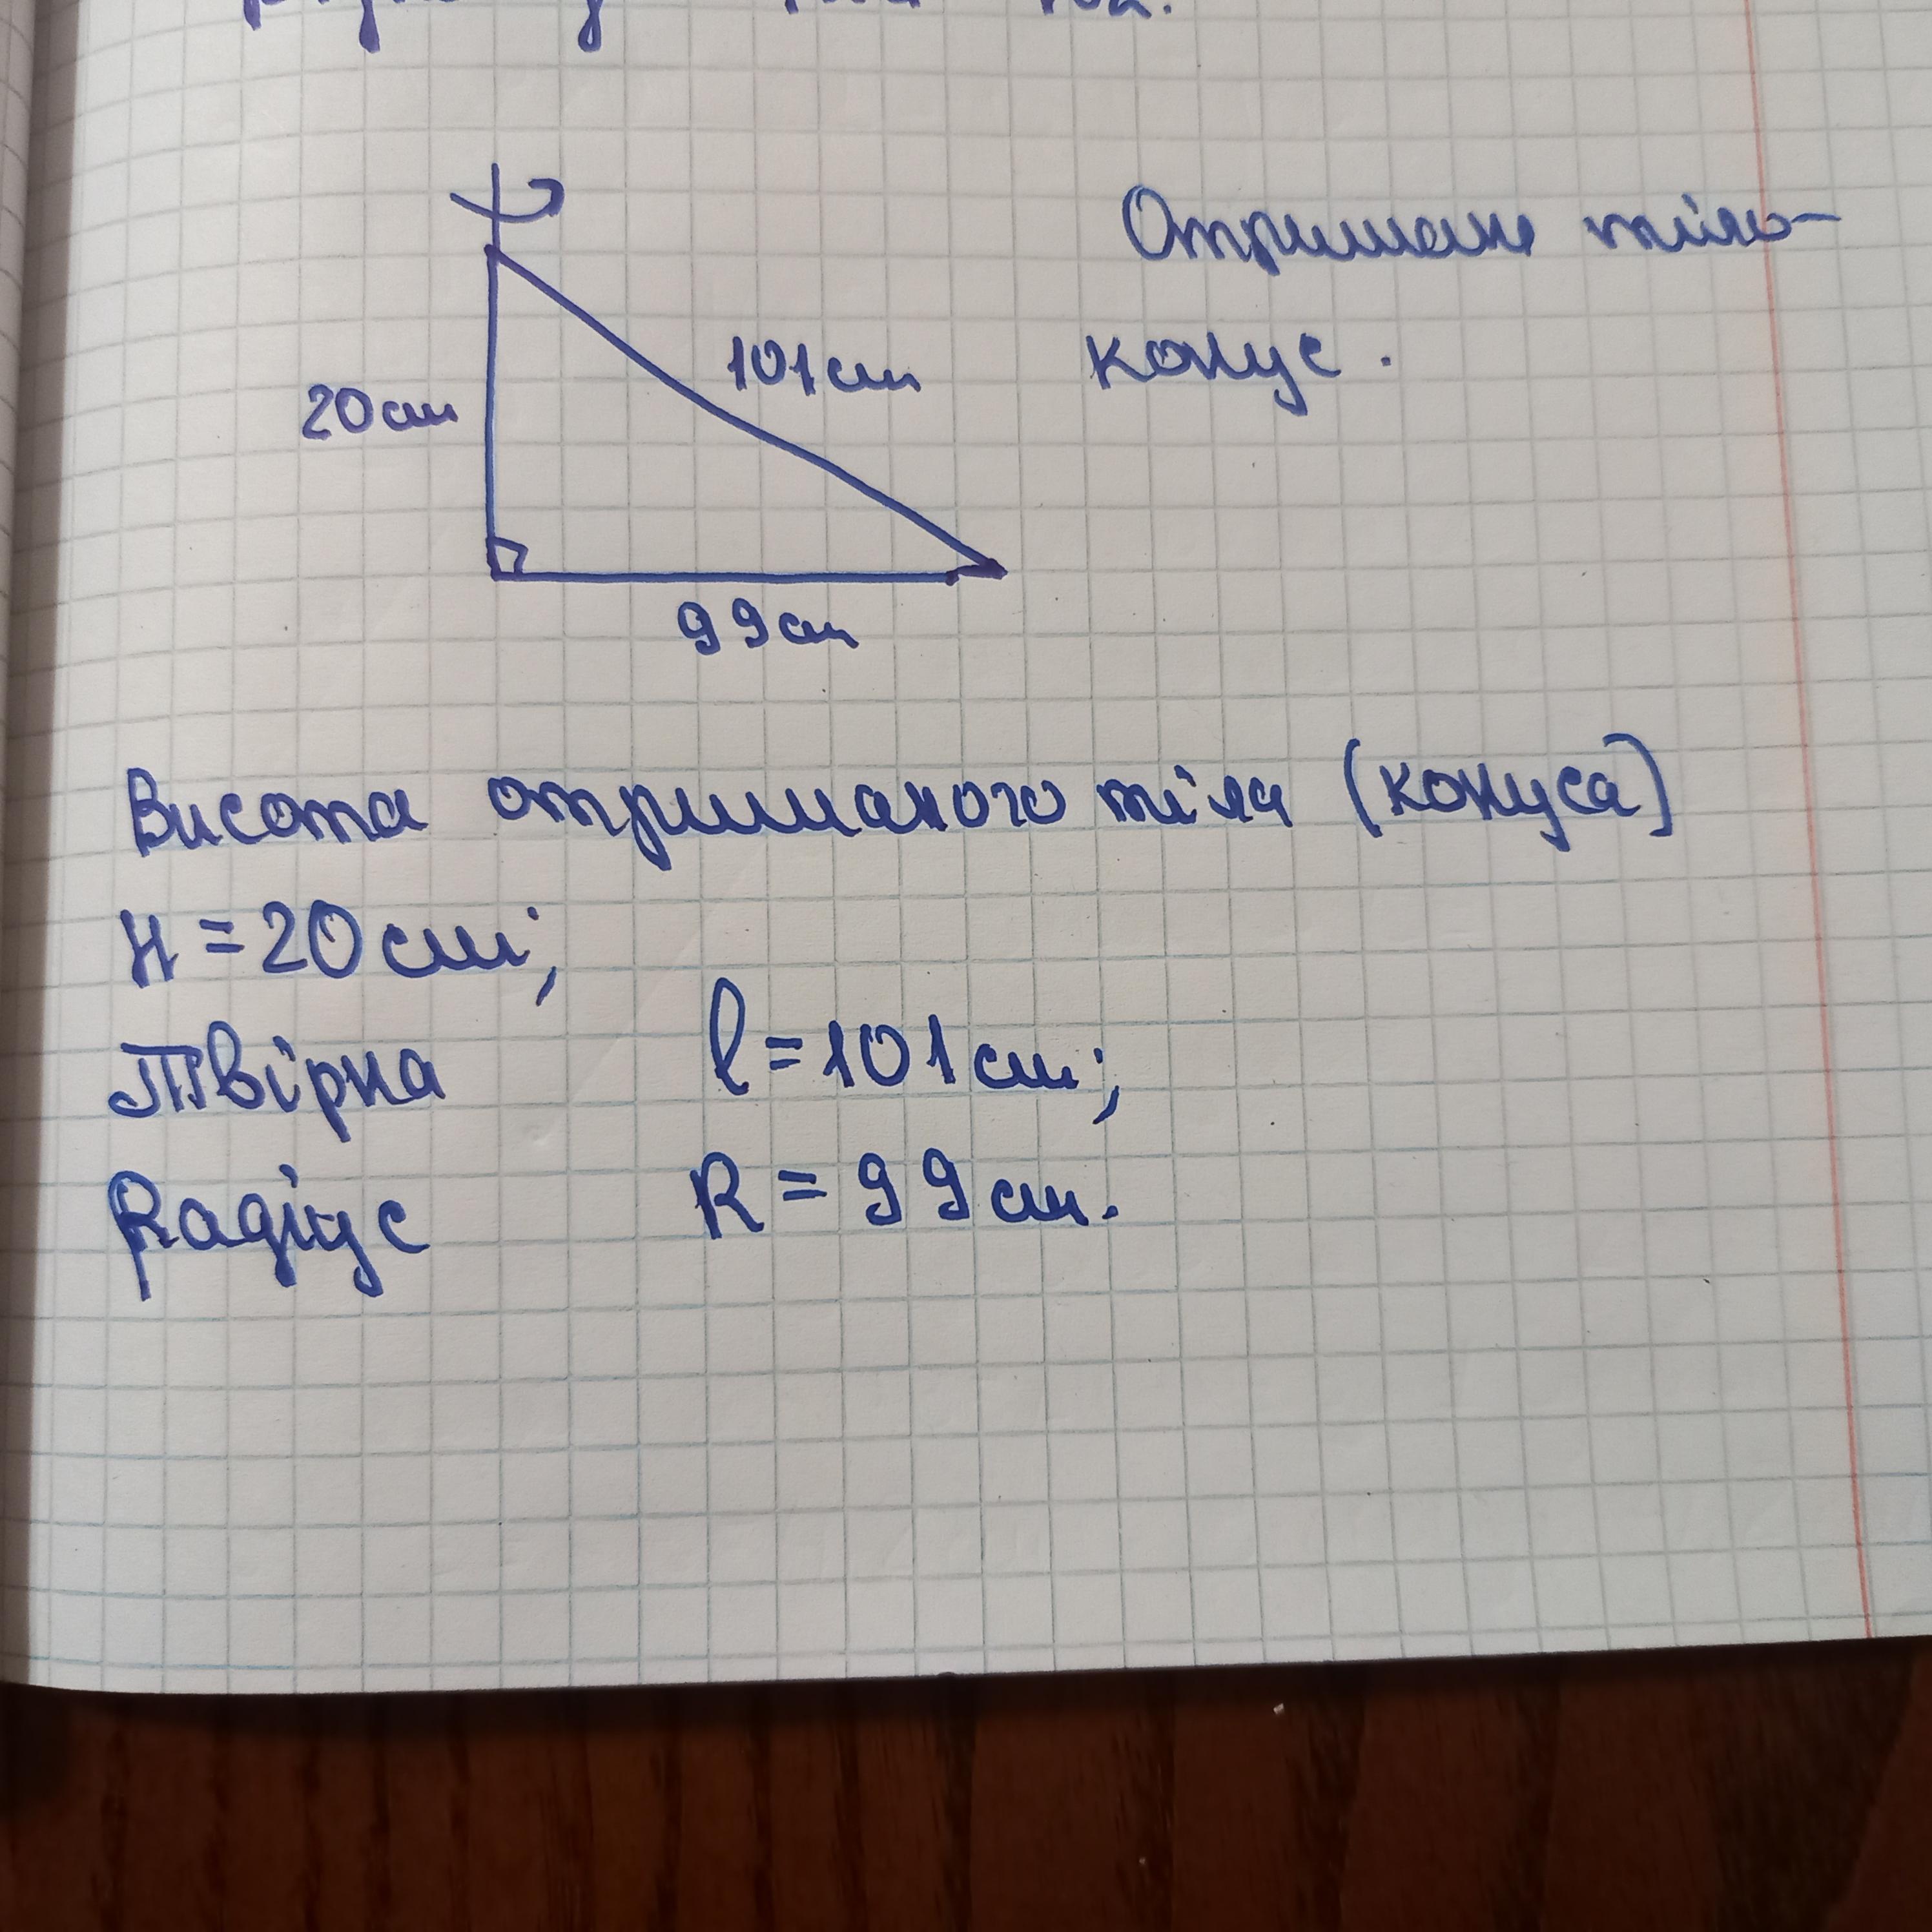 Отримане тіло-
конус.
20см
101см
99см
Висота отриманого тіла (конуса)
H = 20 см;
Твірна l = 101 см;
Радіус R = 99 см.